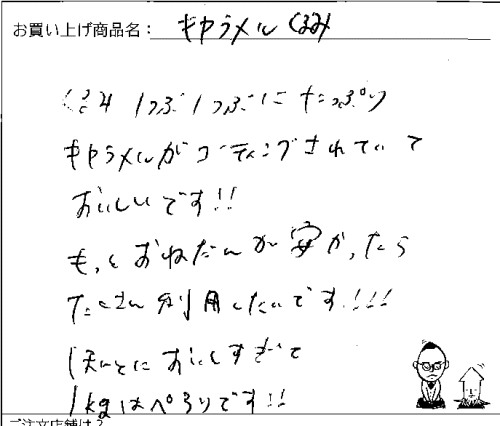 お買い上げ商品名： キャラメルくるみ
くるみ1つぶ1つぶにたっぷり
キャラメルがコーティングされていて
おいしいです!!
もっとおねだんが安かったら
たくさん利用したいです!!!
ほんとにおいしすぎて
1kgはペろりです!!
ご注文店舗は？